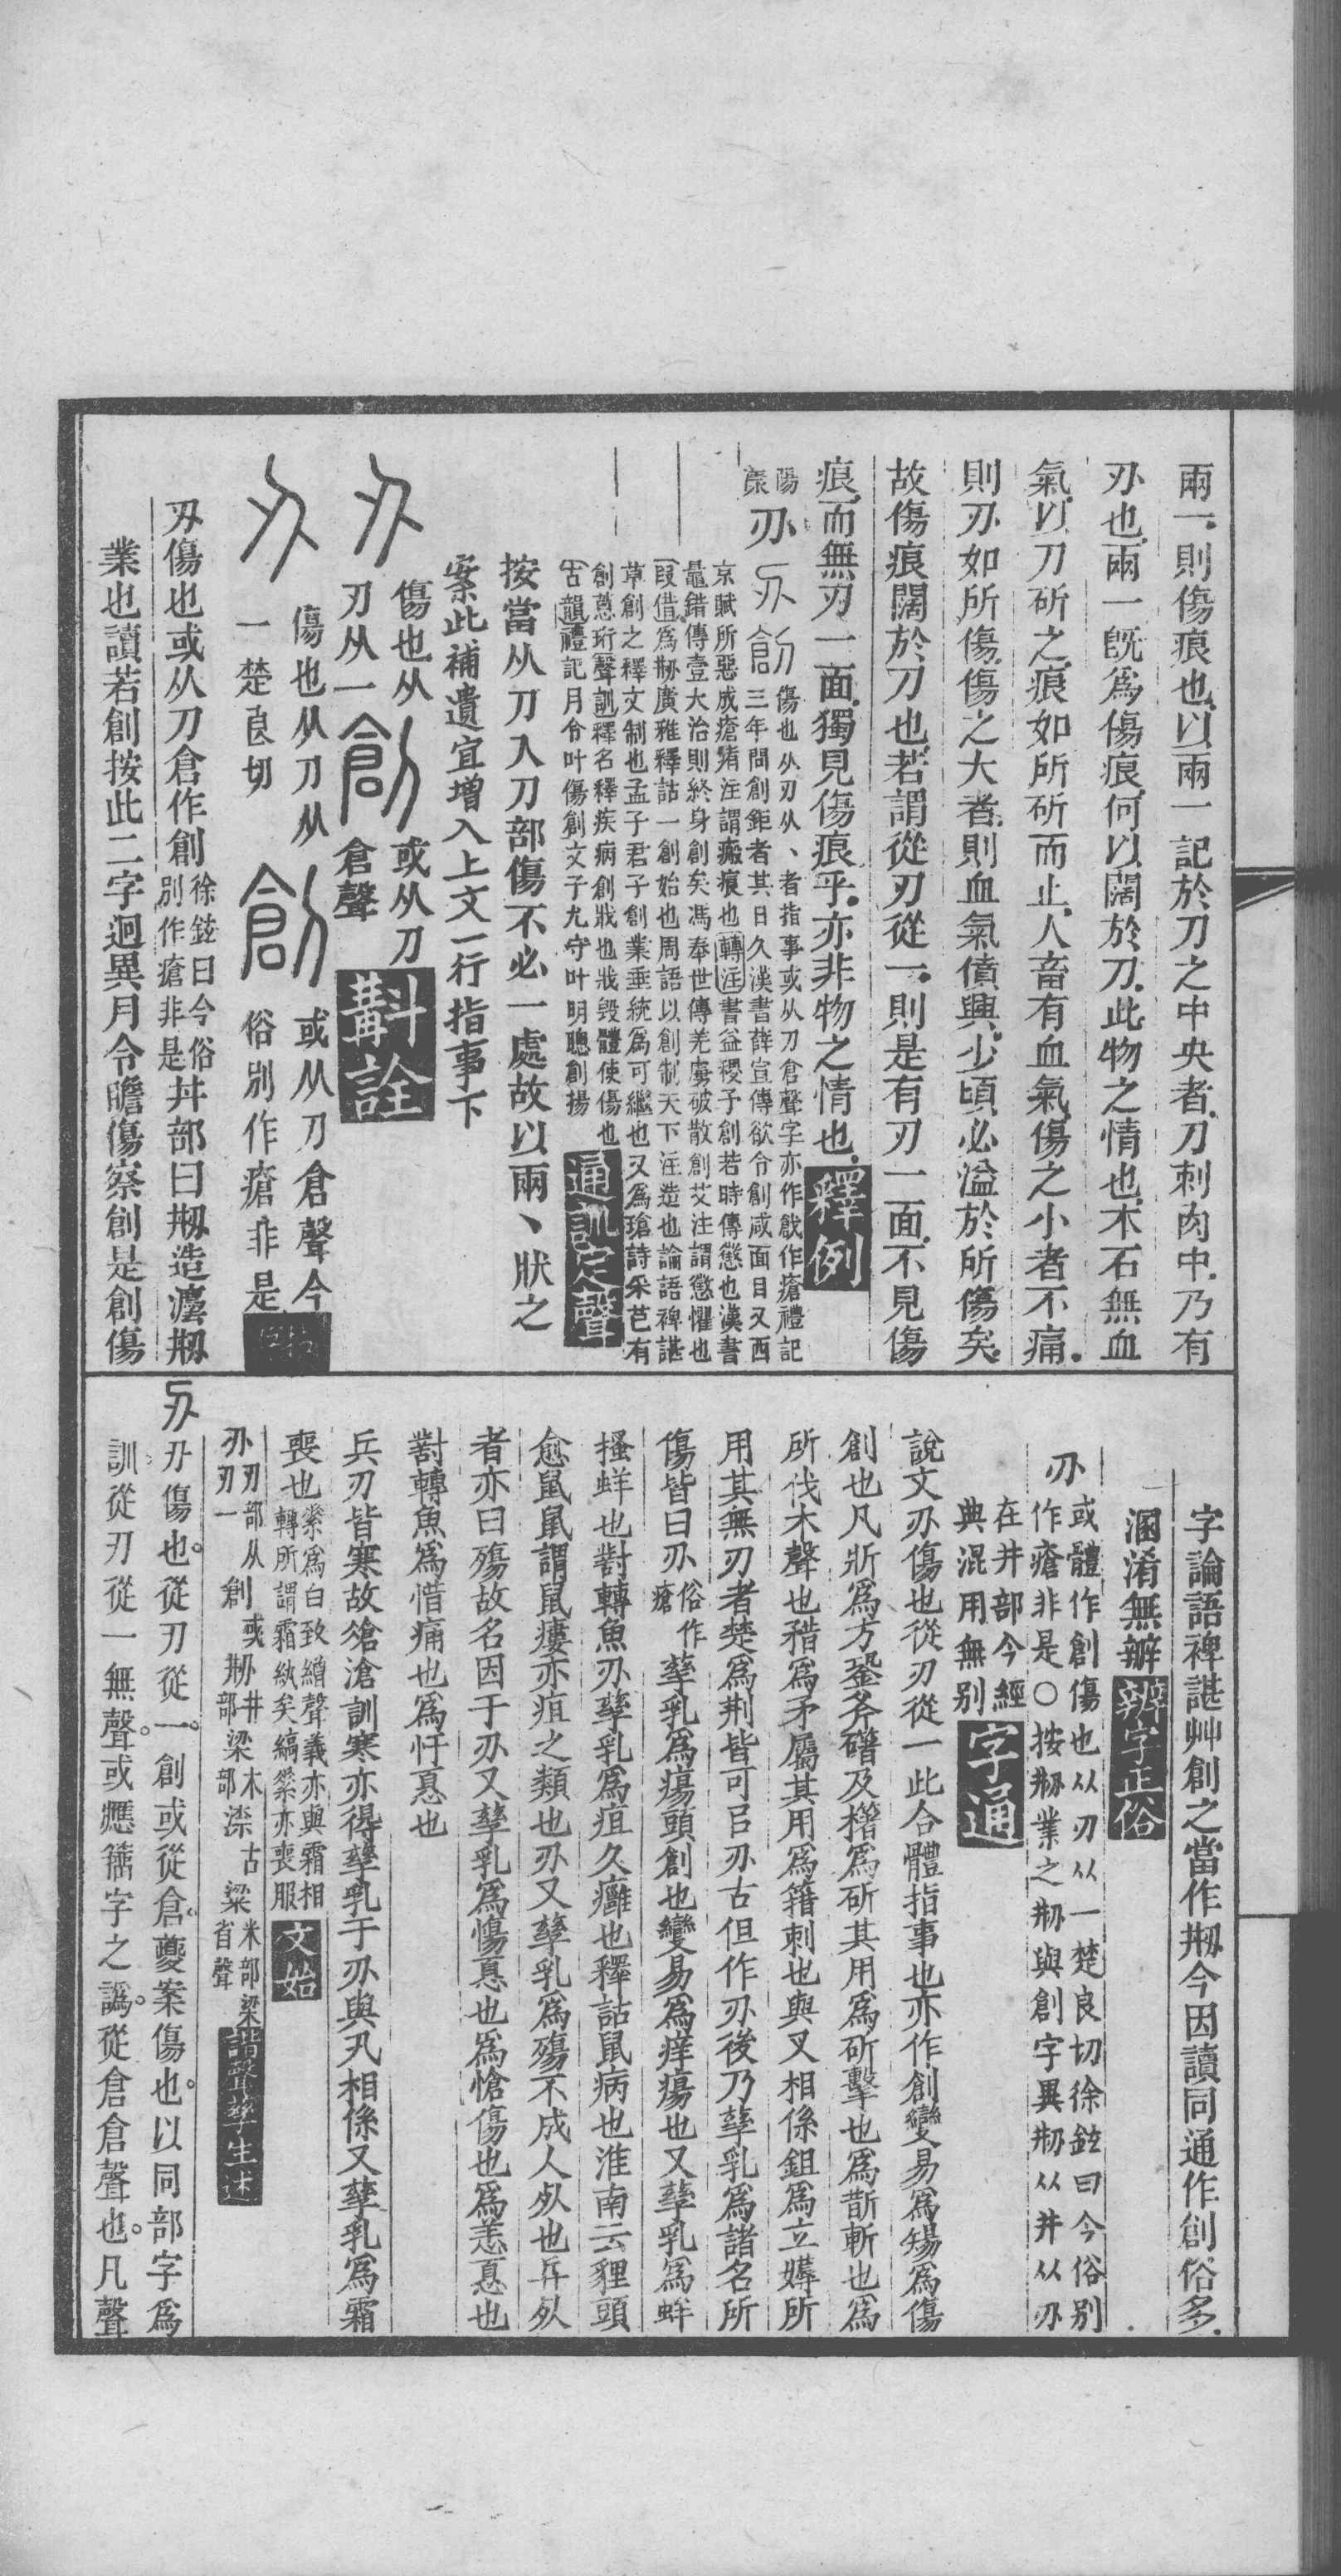 兩一則傷痕也以兩一記於刀之中央者刀刺肉中乃有
刅也兩一旣爲傷痕何以闊於刀此物之情也木石無血
氣以刀斫之痕如所斫而止人畜有血氣傷之小者不痛
則刅如所傷傷之大者則血氣僨興少頃必溢於所傷矣
故傷痕闊於刀也若謂從刃從一則是有刃一面不見傷
痕而無刃一面獨見傷痕乎亦非物之情也釋例
刅 創 傷也从刃从丶者指事或从刀倉聲字亦作戧作瘡禮記
三年問創鉅者其日久漢書薛宣傳欲令創咸面目又西
京賦所惡成瘡痏注謂瘢痕也轉注書益稷予創若時傳懲也漢書
鼂錯傳壹大治則終身創矣馮奉世傳羌虜破散創艾注謂懲懼也
叚借爲刱廣雅釋詁一創始也周語以創制天下注造也論語裨諶
草創之釋文制也孟子君子創業垂統爲可繼也又爲瑲詩采芑有
創蔥珩聲訓釋名釋疾病創戕也戕毀體使傷也
古韻禮記月令叶傷創文子九守叶明聰創揚
通訓定聲
按當从刀入刀部傷不必一處故以兩丶狀之
案此補遺宜增入上文一行指事下
傷也从
刃从一
創 或从刀
倉聲
斠詮
傷也从刀从
一楚良切
創 或从刀倉聲今
俗別作瘡非是
刅傷也或从刀倉作創徐鉉曰今俗
別作瘡非是丼部曰刱造灋刱
業也讀若創按此二字迥異月令瞻傷察創是創傷
字論語裨諶艸創之當作刱今因讀同通作創俗多
溷淆無辧辨字正俗
刅 或體作創傷也从刃从一楚良切徐鉉曰今俗别
作瘡非是〇按刱業之刱與創字異刱从井从刅
在井部今經
典混用無别
字通
說文刅傷也從刃從一此合體指事也亦作創變易爲殤爲傷
創也凡斨爲方銎斧䃈及櫡爲斫其用爲斫擊也爲斮斬也爲
所伐木聲也矠爲矛屬其用爲籍刺也與叉相係鉏爲立薅所
用其無刃者楚爲荆皆可㠯刅古但作刅後乃孳乳爲諸名所
傷皆曰刅俗作
瘡孳乳爲瘍頭創也變易爲痒瘍也又孳乳爲蛘
搔蛘也對轉魚刅孳乳爲疽久癰也釋詁鼠病也淮南云貍頭
愈鼠鼠謂鼠瘻亦疽之類也刅又孳乳爲殤不成人死也兵死
者亦曰殤故名因于刅又孳乳爲慯憂也爲愴傷也爲恙憂也
對轉魚爲惜痛也爲忓憂也
兵刃皆寒故凔滄訓寒亦得孳乳于刅與丮相係又孳乳爲霜
喪也
文始
刅刃部从
刃一創或刱井
部梁木
部㴍古
粱米部梁
省聲
諧聲孳生述
刅傷也從刃從一創或從倉夔案傷也以同部字爲
訓從刃從一無聲或癮籀字之譌從倉倉聲也凡聲